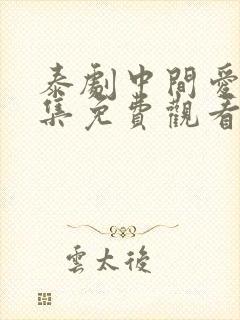 泰劇中間愛
集免費觀看
雲太後